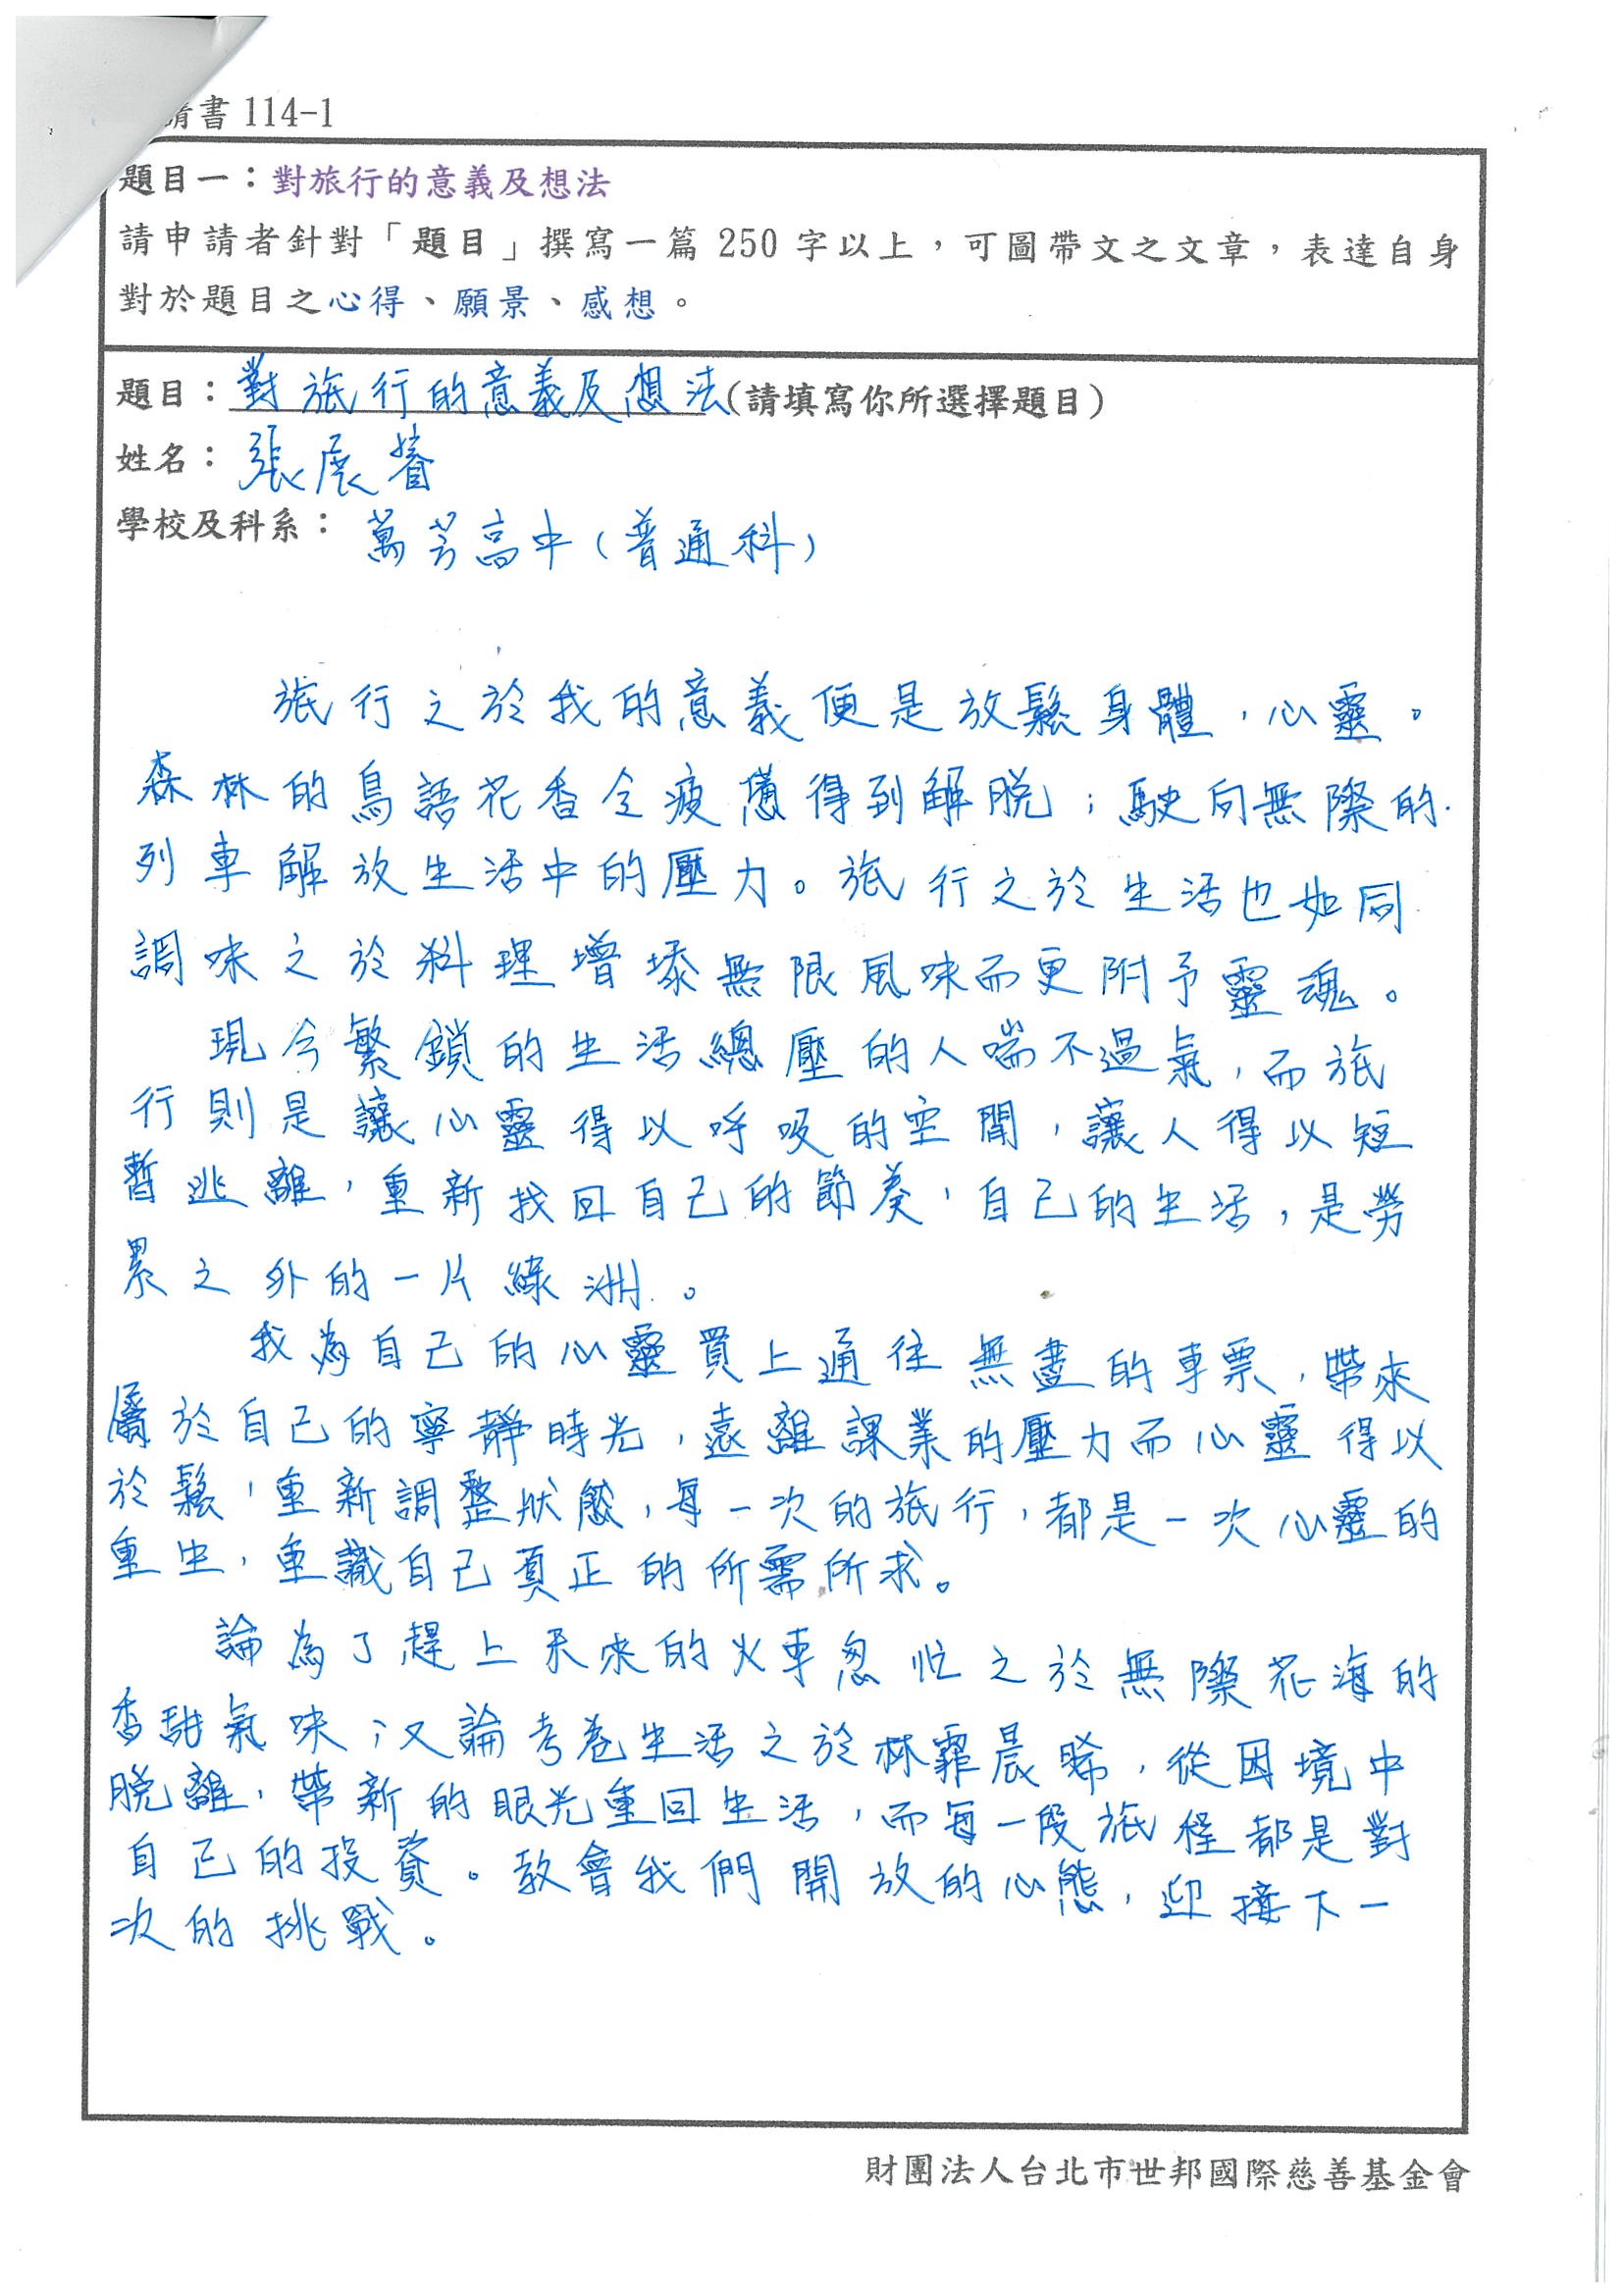 請書 114-1
題目一：對旅行的意義及想法
請申請者針對「題目」撰寫一篇 250 字以上，可圖帶文之文章，表達自身
對於題目之心得、願景、感想。
題目：對旅行的意義及想法(請填寫你所選擇題目)
姓名：張展
學校及科系：萬芳高中(普通科)
旅行之於我的意義便是放鬆身體，心靈。
森林的鳥語花香令疲憊得到解脫；駛向無際的
列車解放生活中的壓力。旅行之於生活也如同
調味之於料理增添無限風味而更附予靈魂。
現今繁鎖的生活總壓的人喘不過氣，而旅
行則是讓心靈得以呼吸的空間，讓人得以短
暫逃離，重新找回自己的節奏，自己的生活，是勞
累之外的一片綠洲。
我為自己的心靈買上通往無盡的車票，帶來
屬於自己的寧靜時光，遠離課業的壓力而心靈得以
於鬆，重新調整狀態，每一次的旅行，都是一次心靈的
重生，重識自己真正的所需所求。
論為了趕上未來的火車忽忙之於無際花海的
香甜氣味；又論考卷生活之於林霏晨晞，從困境中
脫離，帶新的眼光重回生活，而每一段旅程都是對
自己的投資。教會我們開放的心態，迎接下一
次的挑戰。
財團法人台北市世邦國際慈善基金會